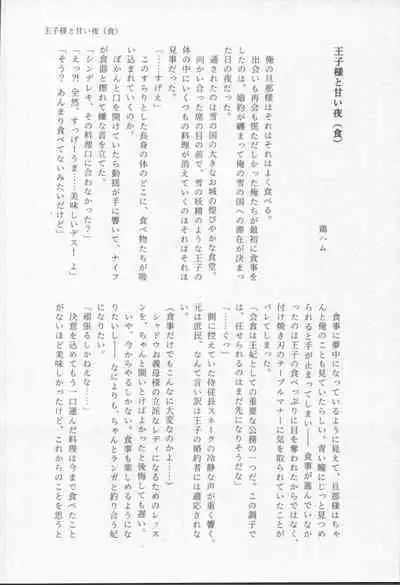 王子様と甘い夜（食）
王子様と甘い夜（食）
鶏ハム
俺の旦那様はそれはそれはよく食べる。
出会いも再会も慌ただしかった俺たちが最初に食事を
したのは、婚約が纏まって俺の雪の国への滞在が決まっ
た日の夜だった。
通されたのは雪の国の大きなお城の煌びやかな食堂。
向かい合った席の目の前で、雪の妖精のような王子の
体の中にいくつもの料理が消えていくのはそれはそれは
見事だった。
「……すげえ」
このすらりとした長身の体のどこに、食べ物たちが吸
い込まれていくのか。
ぽかんと口を開けていたら動揺が手に響いて、ナイフ
が食器と擦れて嫌な音を立てた。
「シンデレキ、その料理口に合わなかった？」
「えっ?!　全然、すっげーうま……美味しいデスー！よ」
「そう？　あんまり食べてないみたいだけど」
食事に夢中になっているように見えて、旦那様はちゃ
んと俺のことも見ていたらしい。青い瞳にじっと見つめ
られると手が止まってしまい――食事が進んでいなか
ったのは王子の食べっぷりに目を奪われたからではなく、
付け焼き刃のテーブルマナーに気を取られていたことが
バレてしまった。
「会食は王妃としての重要な公務の一つだ。この調子で
は、任せられるのはまだ先になりそうだな」
「……ぐっ」
側に控えていた侍従長スネークの冷静な声が重く響く。
元は庶民、なんて言い訳は王子の婚約者には適応されな
い。
（食事だけでもこんなに大変なのかよ――）
シャドウお義母様の立派なレディになるためのレッス
ンを、ちゃんと聞いとけばよかったと後悔しても遅い。
いや、今からやるしかない。食事も楽しめるようにな
りたいし――なによりも、ちゃんとランガと釣り合う妃
になりたい。
「頑張るしかねえな……」
決意を込めてもう一口運んだ料理は今まで食べたこと
がないほど美味しかったけど、これからのことを思うと